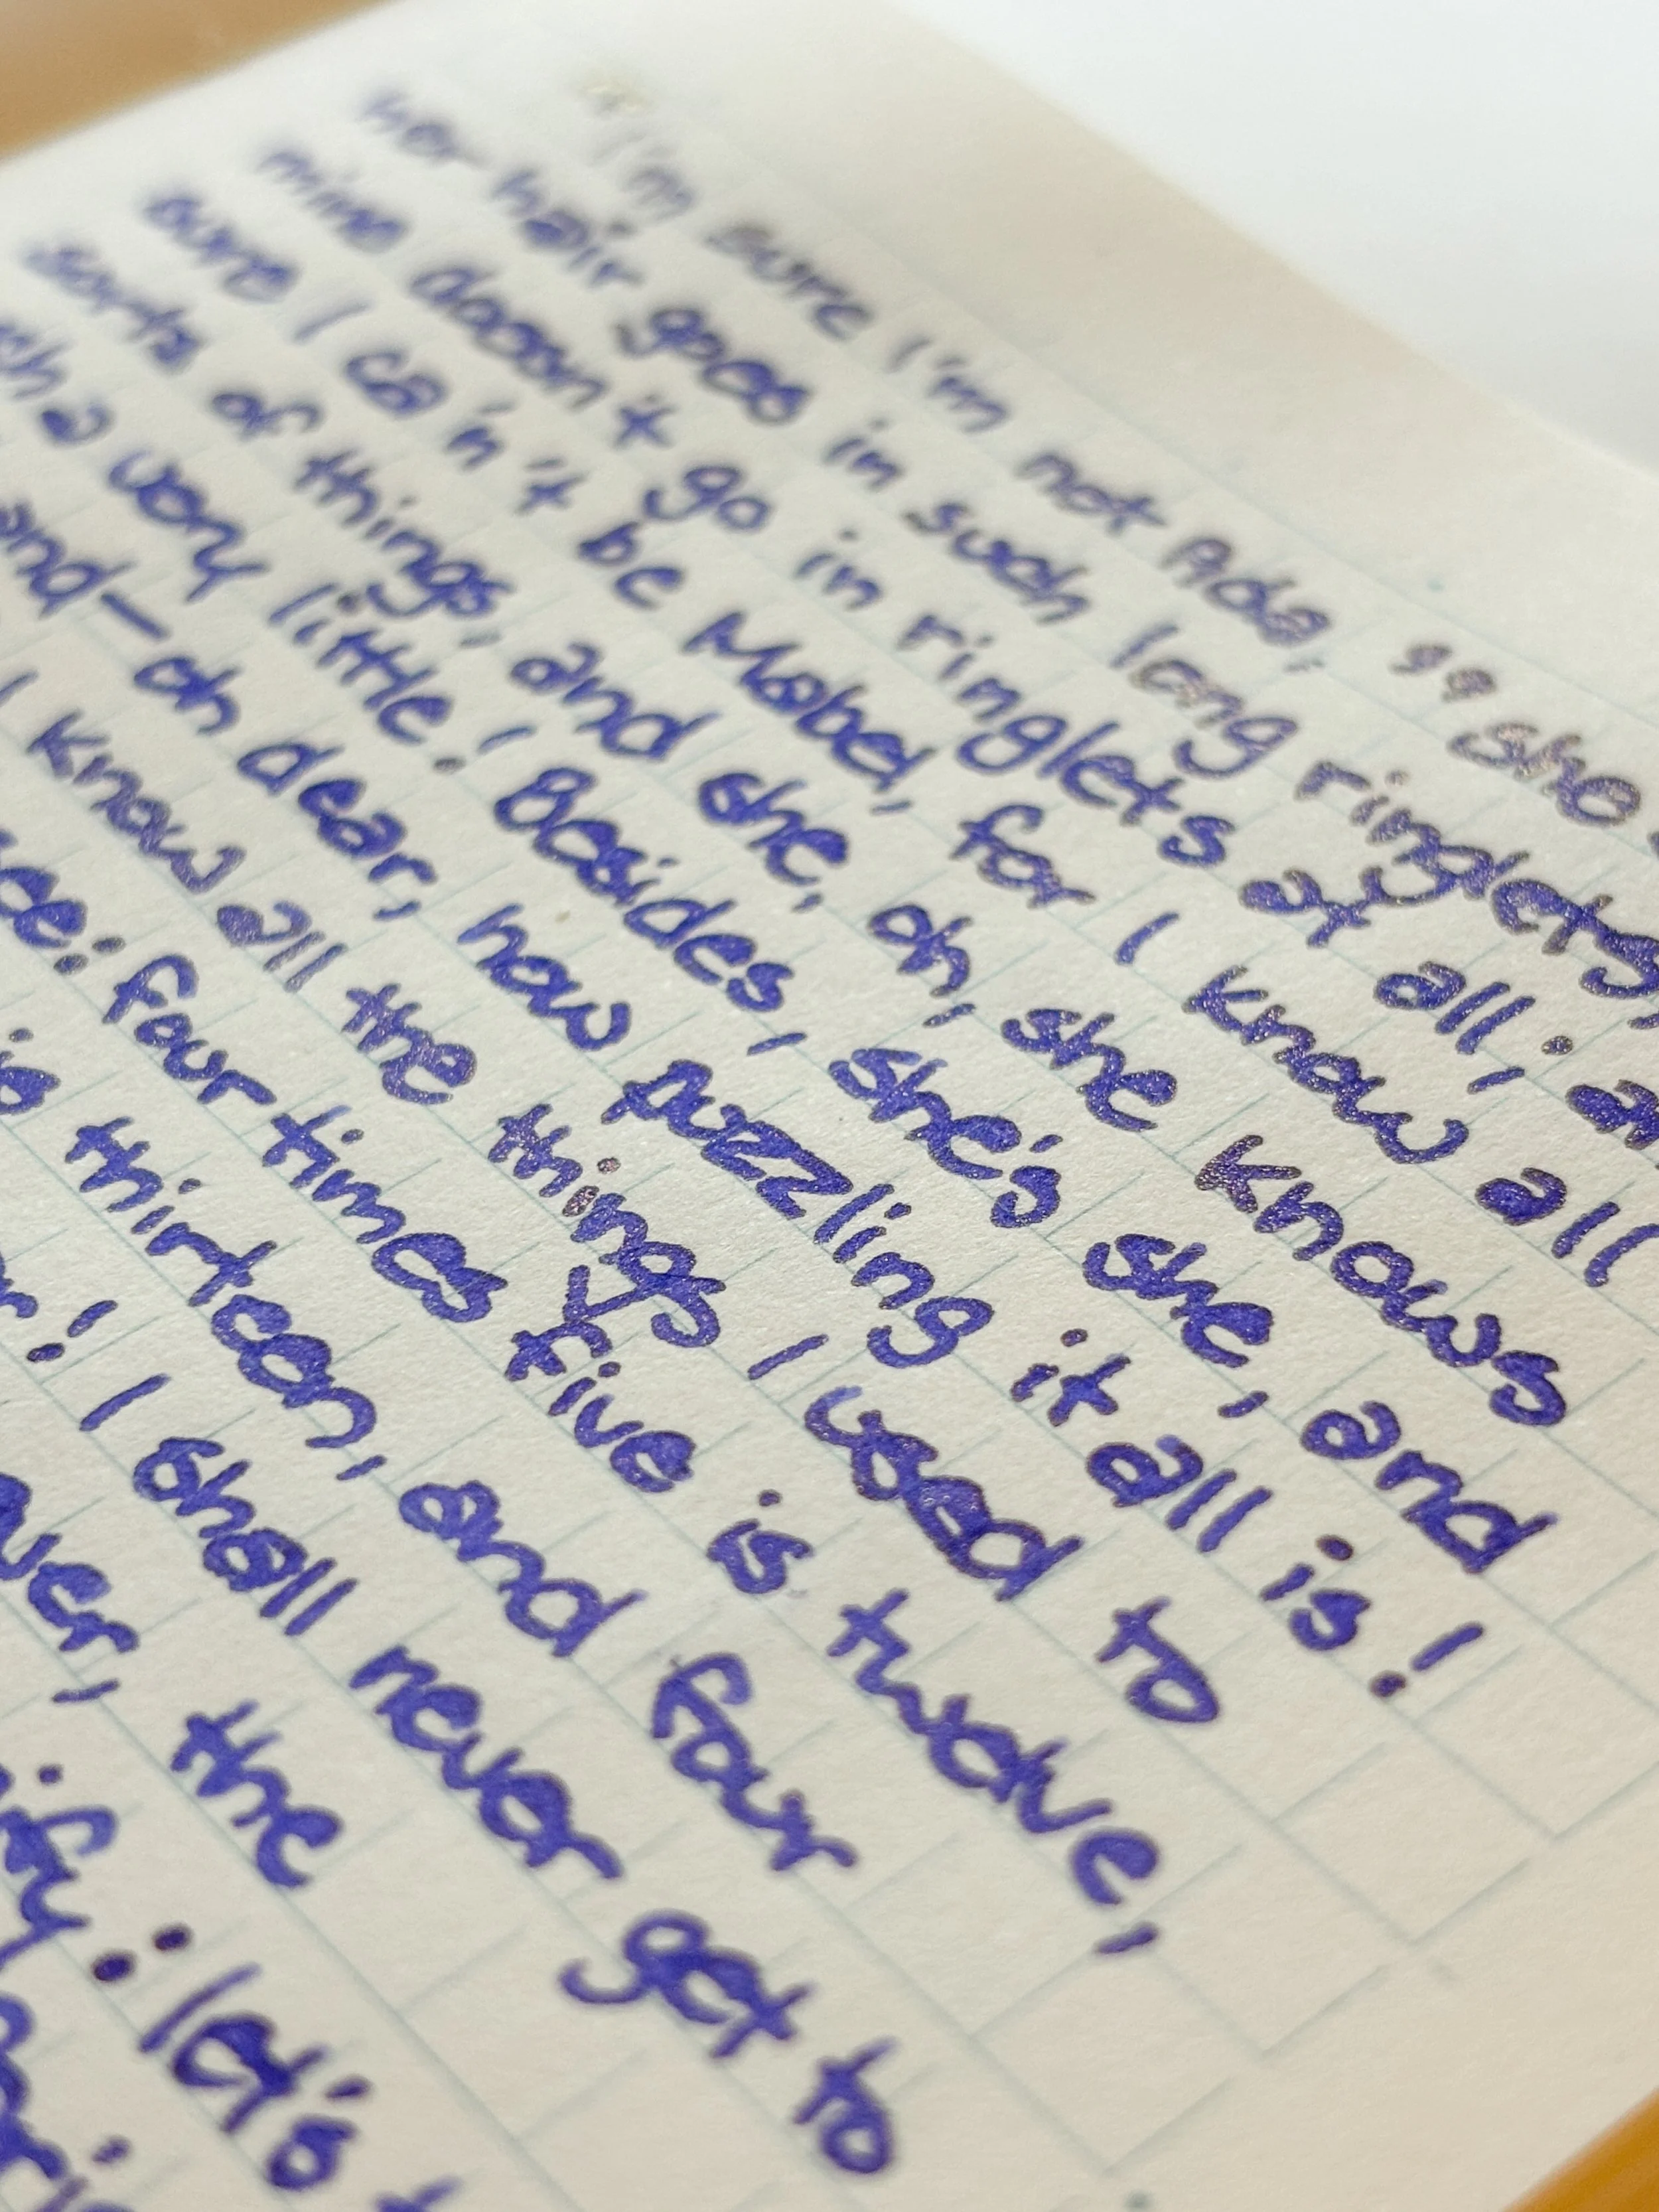 "I'm sure I'm not Ada," she
her hair goes in such long ringlets,
mine doesn't go in ringlets at all; an
sure I ca'n't be Mabel, for I know all
sorts of things, and she, oh, she knows
a very little! Besides, she's she, and
and—oh dear, how puzzling it all is!
I know all the things I used to
four times five is twelve,
thirteen, and four
! I shall never get to
the
let's